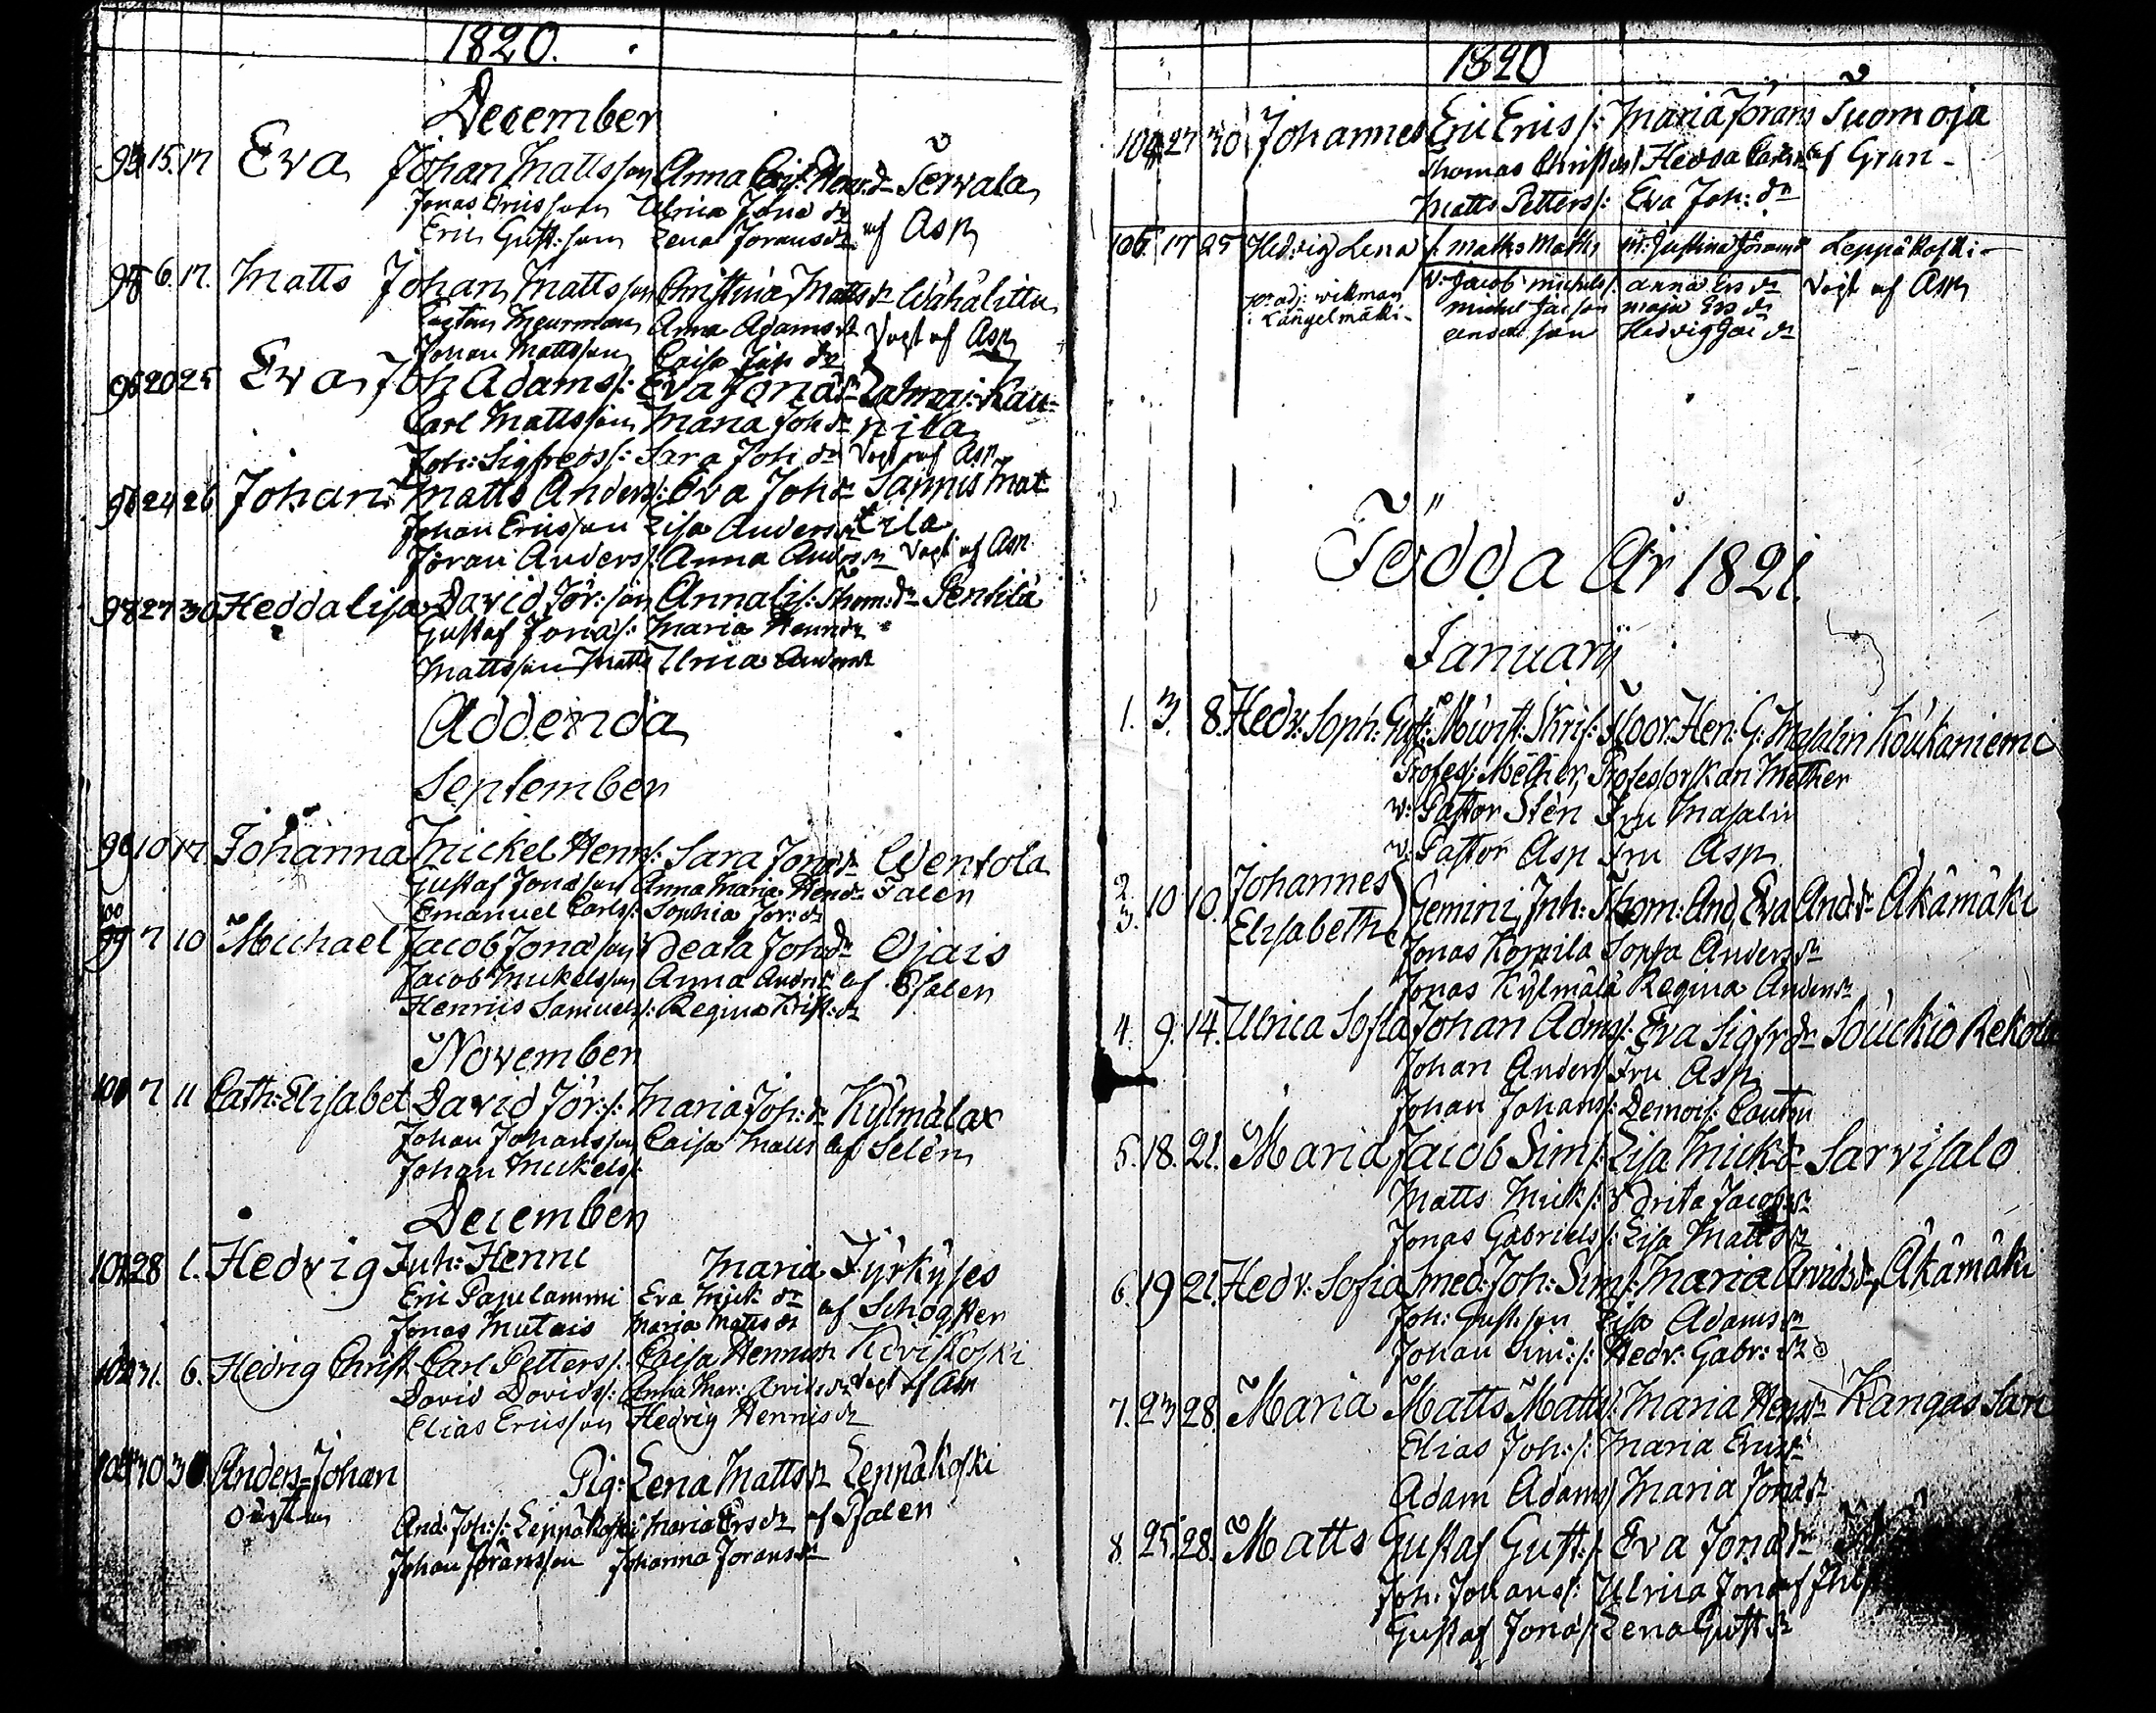 1820.
December
15. 17 Eva Johan Mattsson Anna Henr: dr Servala
Jonas Ericsson Ulrica Jona dr
Eric Gust: son Lena Joransdr af Asp
6. 17. Matts Johan Mattsson Christina Matts dr Wähälittu
Anna Adamsdr Dopt af Asp
Johan Mattsson Caisa Joh dr
20 25 Eva Joh Adams: Eva Jona dr Kau-
Carl Mattsson Maria Joh dr nila
Joh: Sigfreds: Sara Joh dr Dopt af Asp
24 26 Johan Matts Anders: Eva Joh dr Sannis Mat-
Johan Ericsson Lisa Andersdr tila
Joran Anders: Anna Anders dr Dopt af Asp.
98 27 30 Hedda Lisa David Jör: son Annalis: Thom: dr Pentilä
Gustaf Jonas: Maria Henr dr
Mattsson Matts Ulrica Anders dr
Addenda
September
10 17 Johanna Mickel Henr: Sara Jona dr Wentola
Gustaf Jonasson Anna Maria Henr dr Palen
Emanuel Carls: Sophia Jör: dr
100
99 7 10 Michael Jacob Jonasson Beata Joh dr Ojais
Jacob Mickelsson Anna Andr: dr af Psalen
Henric Samuels: Regina Krist: dr
November
7 11 Cath: Elisabet David Jör: s: Maria Joh: dr Kylmälax
Johan Johansson Caisa Matts af Selén
Johan Mickels:
December
28 1. Hedvig Inh: Henric Maria Jyrkyses
Eric Papilammi Eva Mick: dr af Schogster
Jonas Mutais Maria Matts dr
31. 6. Hedvig Christ Carl Petters: Caisa Henricsdr Koviskoski
David Davids: Anna Mar: Arvids dr Dopt af Asp
Elias Ericsson Hedvig Henricsdr
30 30 Anders Johan Pig: Lena Matts dr Leppäkoski
And: Joh: s: Leppäkoski Maria Ersdr af Psalen
Johan Joransson Johanna Joransdr
1820
27 30 Johannes Eric Erics: Maria Jörans Suomoja
Thomas Christers: Hedda Carlsdr af Gran-
Matts Petters: Eva Joh: dr
17 25 Hedvig Lena s. Matts Matts M: Justina Jöransdr Leppäkoski-
V: Jacob Michels: Anna Ers dr Dopt af Asp
adj: Wikman Michel Jacson Maja Ers dr
i Längelmäki- Hedvig Jac dr
Födda År 1821.
Januarii
1. 3. 8. Hedv: Soph: Gust: Münst: Skrif: Floor. Hen: G: Masalin Koukaniemi
Profess: Mether, Professorskan Mether
v: Pastor Stén Fru Masalin
v: Pastor Asp Fru Asp
2 10 10. Johannes
3. Elisabeth Gemini, Inh: Thom: And, Eva And: dr Äkämäki
Jonas Kompila Sofia Anders dr
Jonas Kylmälä Regina Anders dr
4. 9. 14. Ulrica Sofia Johan Adms: Eva Sigfr dr Souckio Rekola
Johan Anders Fru Asp
Johan Johans: Demois: Couton
5. 18. 21. Maria Jacob Sim: Lisa Mick dr Sarvisalo
Matts Mick: Brita Jacobsdr
Jonas Gabriels: Lisa Matts dr
6. 19 21. Hedv: Sofia Smed: Joh: Sim: Maria Arvids dr, Äkämäki
Joh: Gust: son Lisa Adams dr
Johan Sim: s: Hedv: Gabr: dr
7. 23 28. Maria Matts Matts: Maria Henr dr Kangas Sari
Elias Joh: s: Maria Erics dr
Adam Adams Maria Jona dr
8. 25. 28. Matts Gustaf Gust: s: Eva Jona dr
Joh: Johans: Ulrica Jona af
Gustaf Jonas: Lena Gust dr